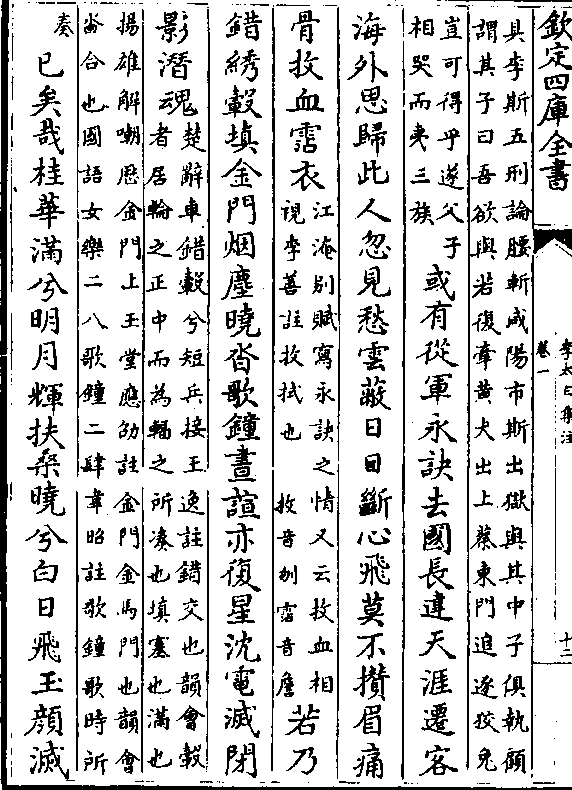 欽定四庫全書
李太白集注
卷一
十二
具李斯五刑論腰斬咸陽市斯出獄與其中子俱執顧
謂其子曰吾欲與若復牽黃犬出上蔡東門追逐狡兔
豈可得乎遂父子
相哭而夷三族
或有從軍永訣去國長違天涯遷客
海外思歸此人忽見愁雲蔽日目斷心飛莫不攢眉痛
骨抆血霑衣
江淹别賦寫永訣之情又云抆血相
視李善註抆拭也抆音刎霑音詹
若乃
錯綉轂填金門烟塵曉沓歌鐘晝諠亦復星沈電滅閉
影潛魂
楚辭車錯轂兮短兵接王逸註錯交也韻會轂
者居輪之正中而為輻之所湊也填塞也滿也
揚雄解嘲歴金門上玉堂應劭註金門金馬門也韻會
沓合也國語女樂二八歌鐘二肆韋昭註歌鐘歌時所
奏
已矣哉桂華滿兮明月輝扶桑曉兮白日飛玉顔滅